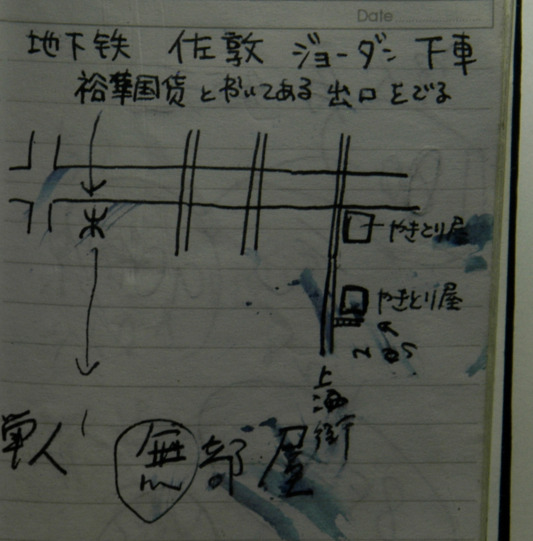 Date
地下鉄 佐敦 ジョーダン 下車
裕華国货 とかいてある 出口 をでる
木
やきとり屋
やきとり屋
上海街
単人
無部屋